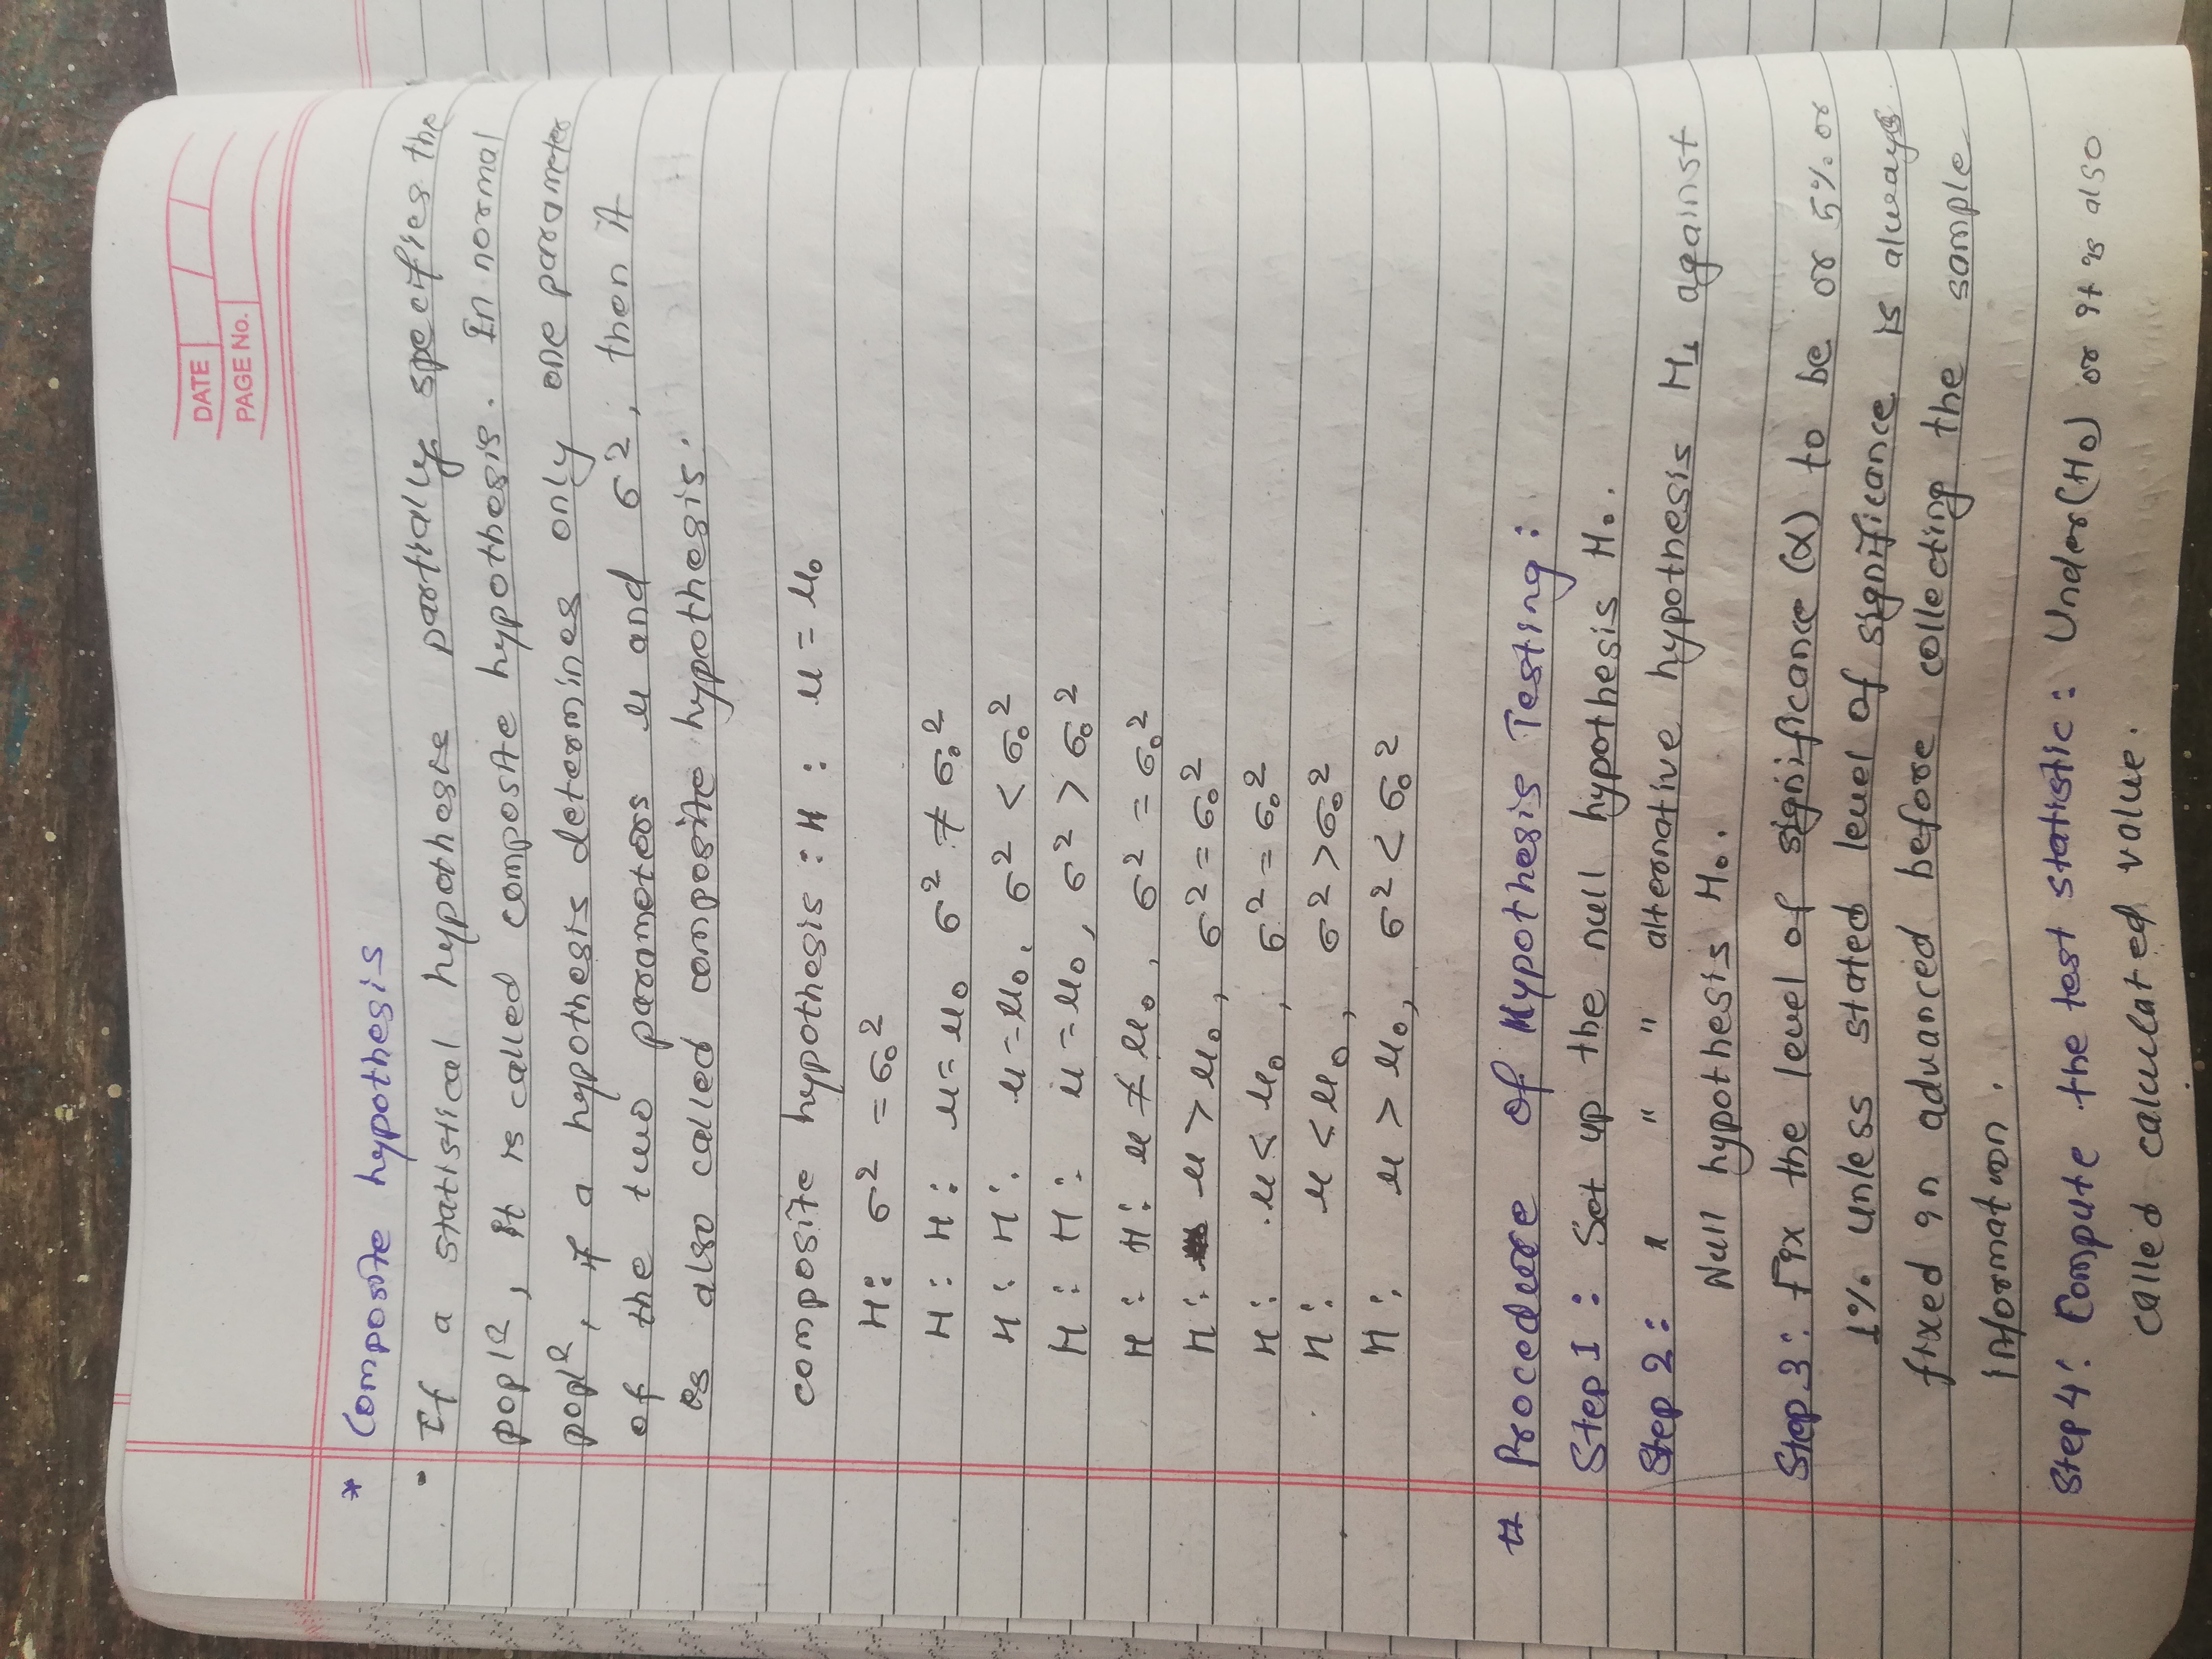 DATE / /
PAGE No.
* Composite hypothesis
• If a statistical hypothesis partially specifies the
poplⁿ, it is called composite hypothesis. In normal
poplⁿ, if a hypothesis determines only one parameter
of the two parameters μ and σ², then it
is also called composite hypothesis.
composite hypothesis : H : μ = μ₀
H: σ² = σ₀²
H : H : μ = μ₀ σ² ≠ σ₀²
H : H : μ = μ₀, σ² < σ₀²
H : H : μ = μ₀, σ² > σ₀²
H : H : μ ≠ μ₀, σ² = σ₀²
H : μ > μ₀, σ² = σ₀²
H : μ < μ₀, σ² = σ₀²
H : μ < μ₀, σ² > σ₀²
H : μ > μ₀, σ² < σ₀²
# Procedure of Hypothesis Testing :
Step 1 : Set up the null hypothesis H₀.
Step 2 : " " " alternative hypothesis H₁ against
Null hypothesis H₀.
Step 3 : Fix the level of significance (α) to be or 5% or
1% unless stated level of significance is always
fixed in advanced before collecting the sample
information.
Step 4 : Compute the test statistic : Under (H₀) or it is also
called calculated value.